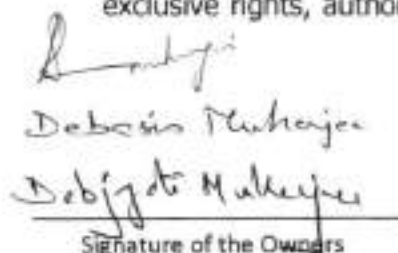 exclusive rights, author
Debasis Mukherjee
Debjyoti Mukherjee
Signature of the Owners